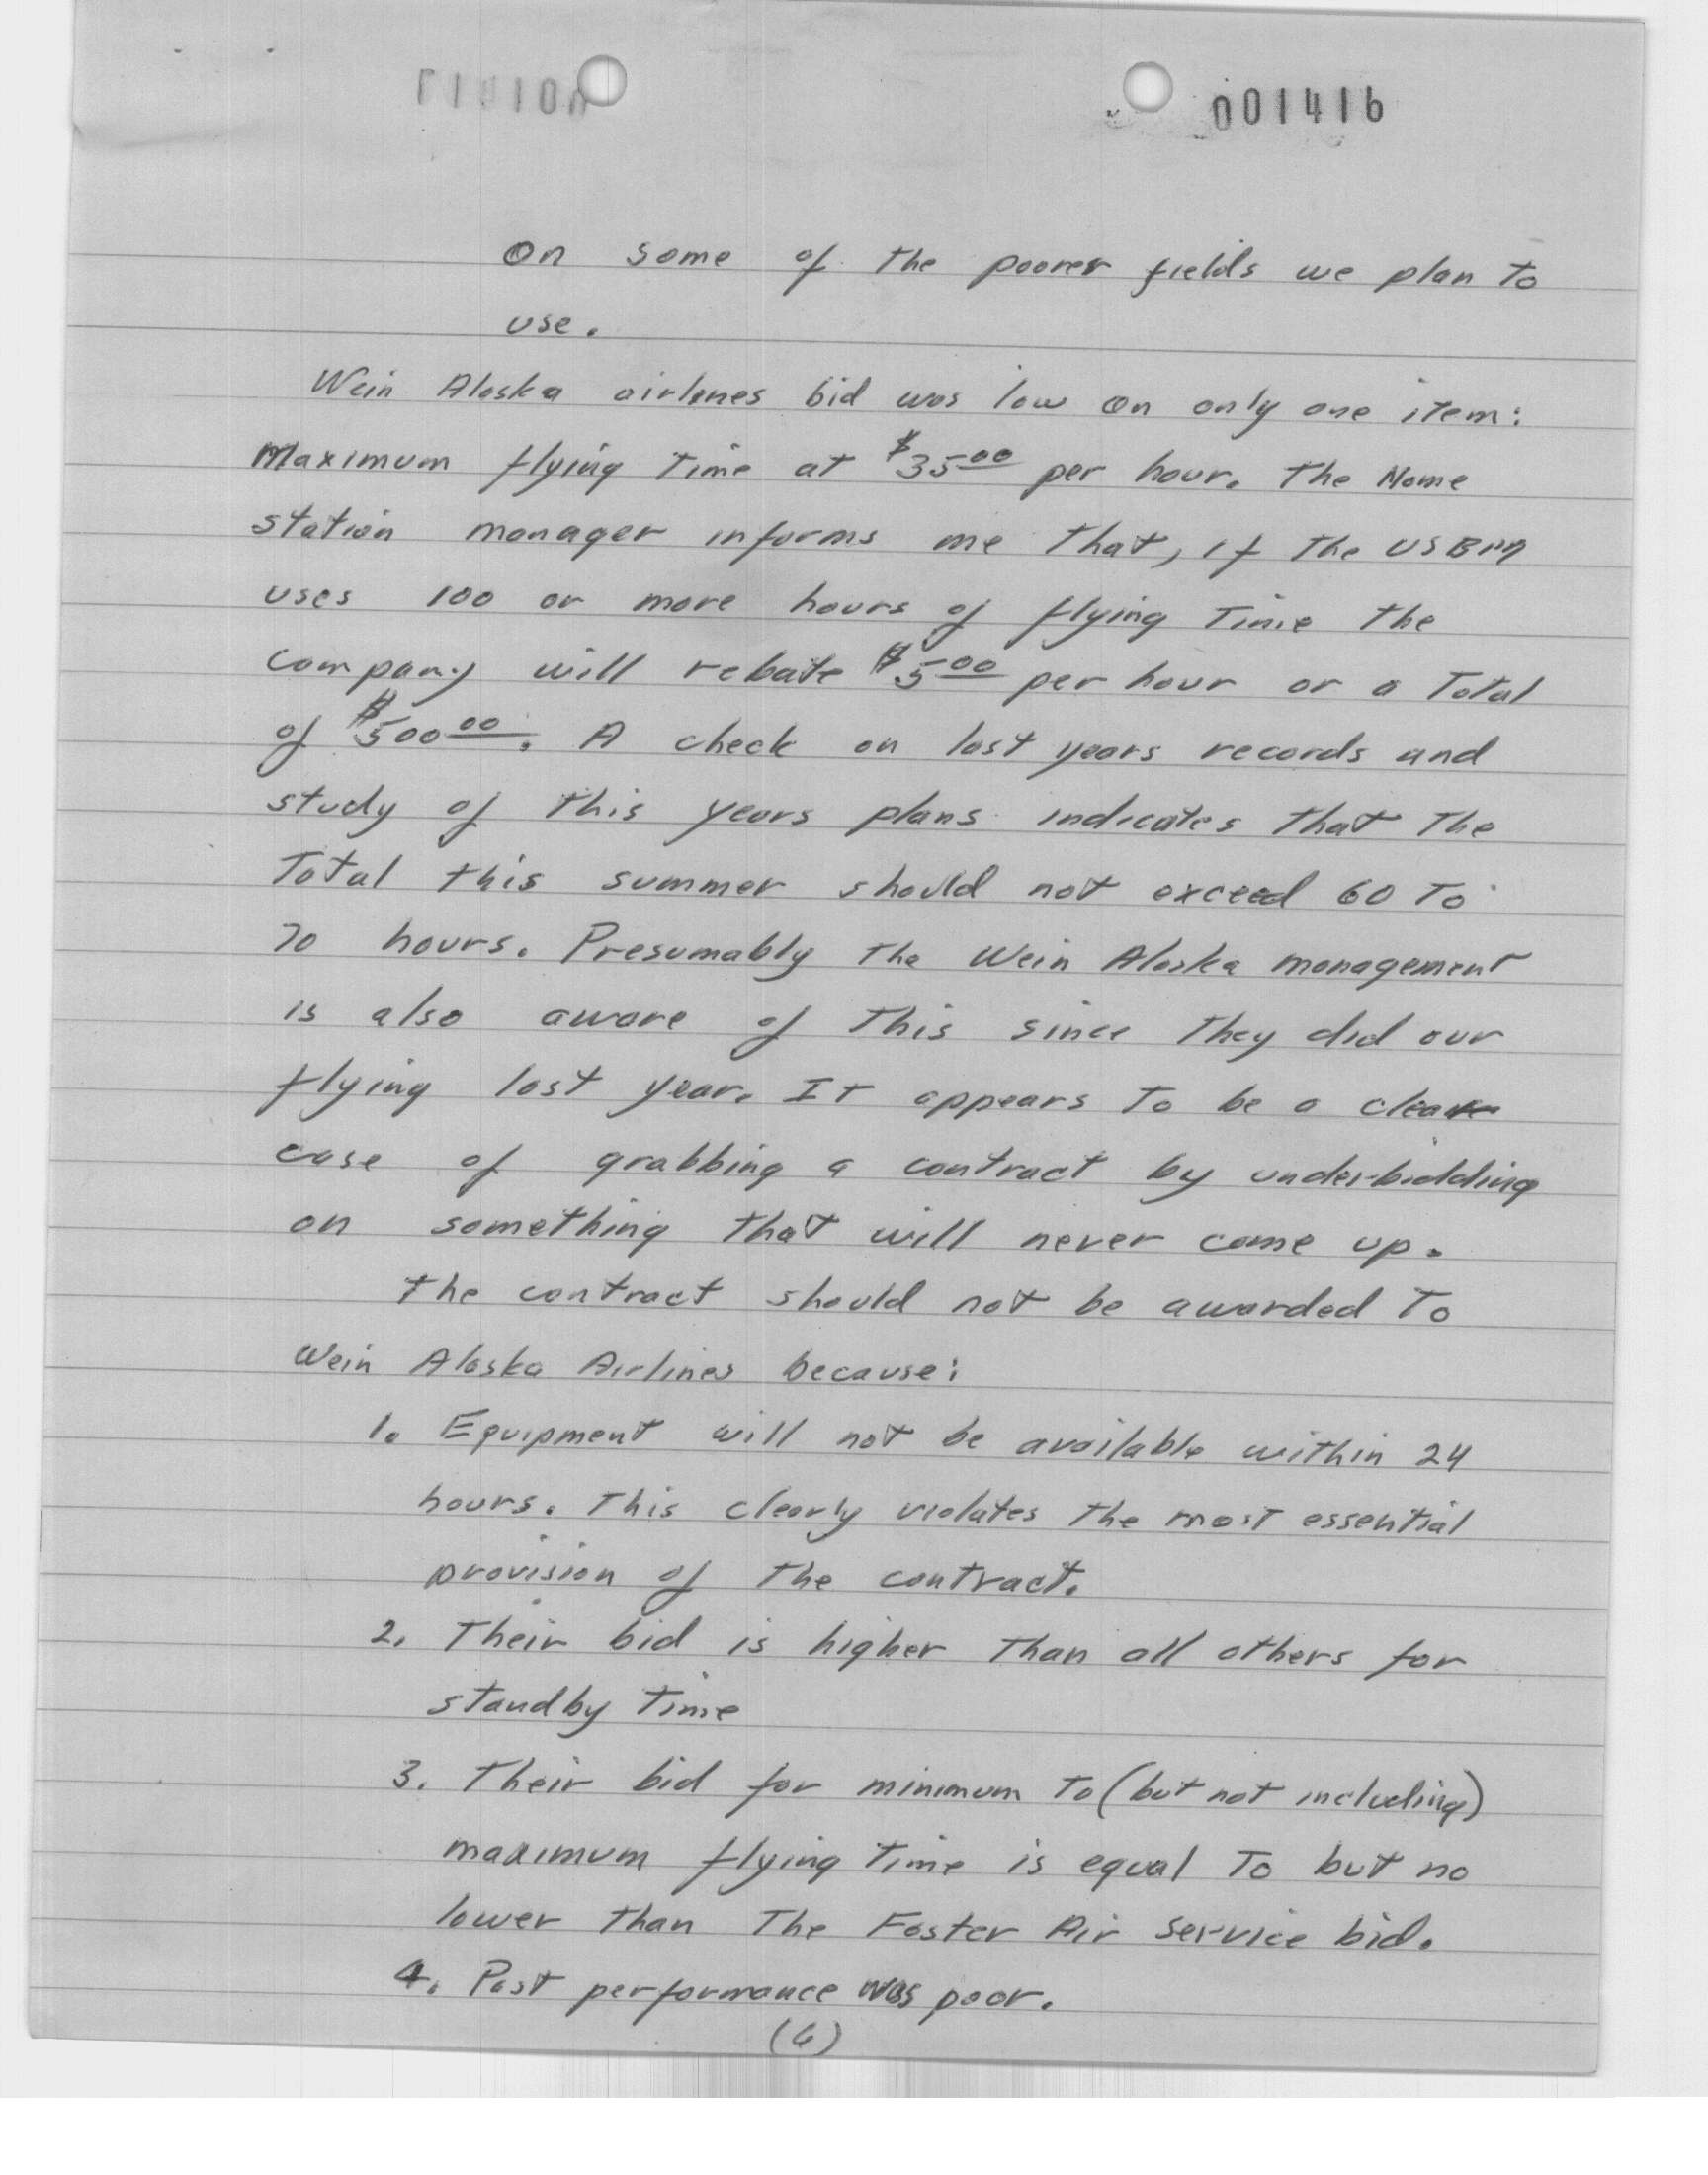 001416
on some of the poorer fields we plan to
use.
Wein Alaska airlines bid was low on only one item:
Maximum flying time at $35.00 per hour. The Nome
station manager informs me that, if the USBM
uses 100 or more hours of flying time the
company will rebate $5.00 per hour or a total
of $500.00. A check on last years records and
study of this years plans indicates that the
total this summer should not exceed 60 to
70 hours. Presumably the Wein Alaska management
is also aware of this since they did our
flying last year. It appears to be a clear
case of grabbing a contract by underbidding
on something that will never come up.
The contract should not be awarded to
Wein Alaska Airlines because:
1. Equipment will not be available within 24
hours. This clearly violates the most essential
provision of the contract.
2. Their bid is higher than all others for
standby time
3. Their bid for minimum to (but not including)
maximum flying time is equal to but no
lower than the Foster Air Service bid.
4. Past performance was poor.
(6)